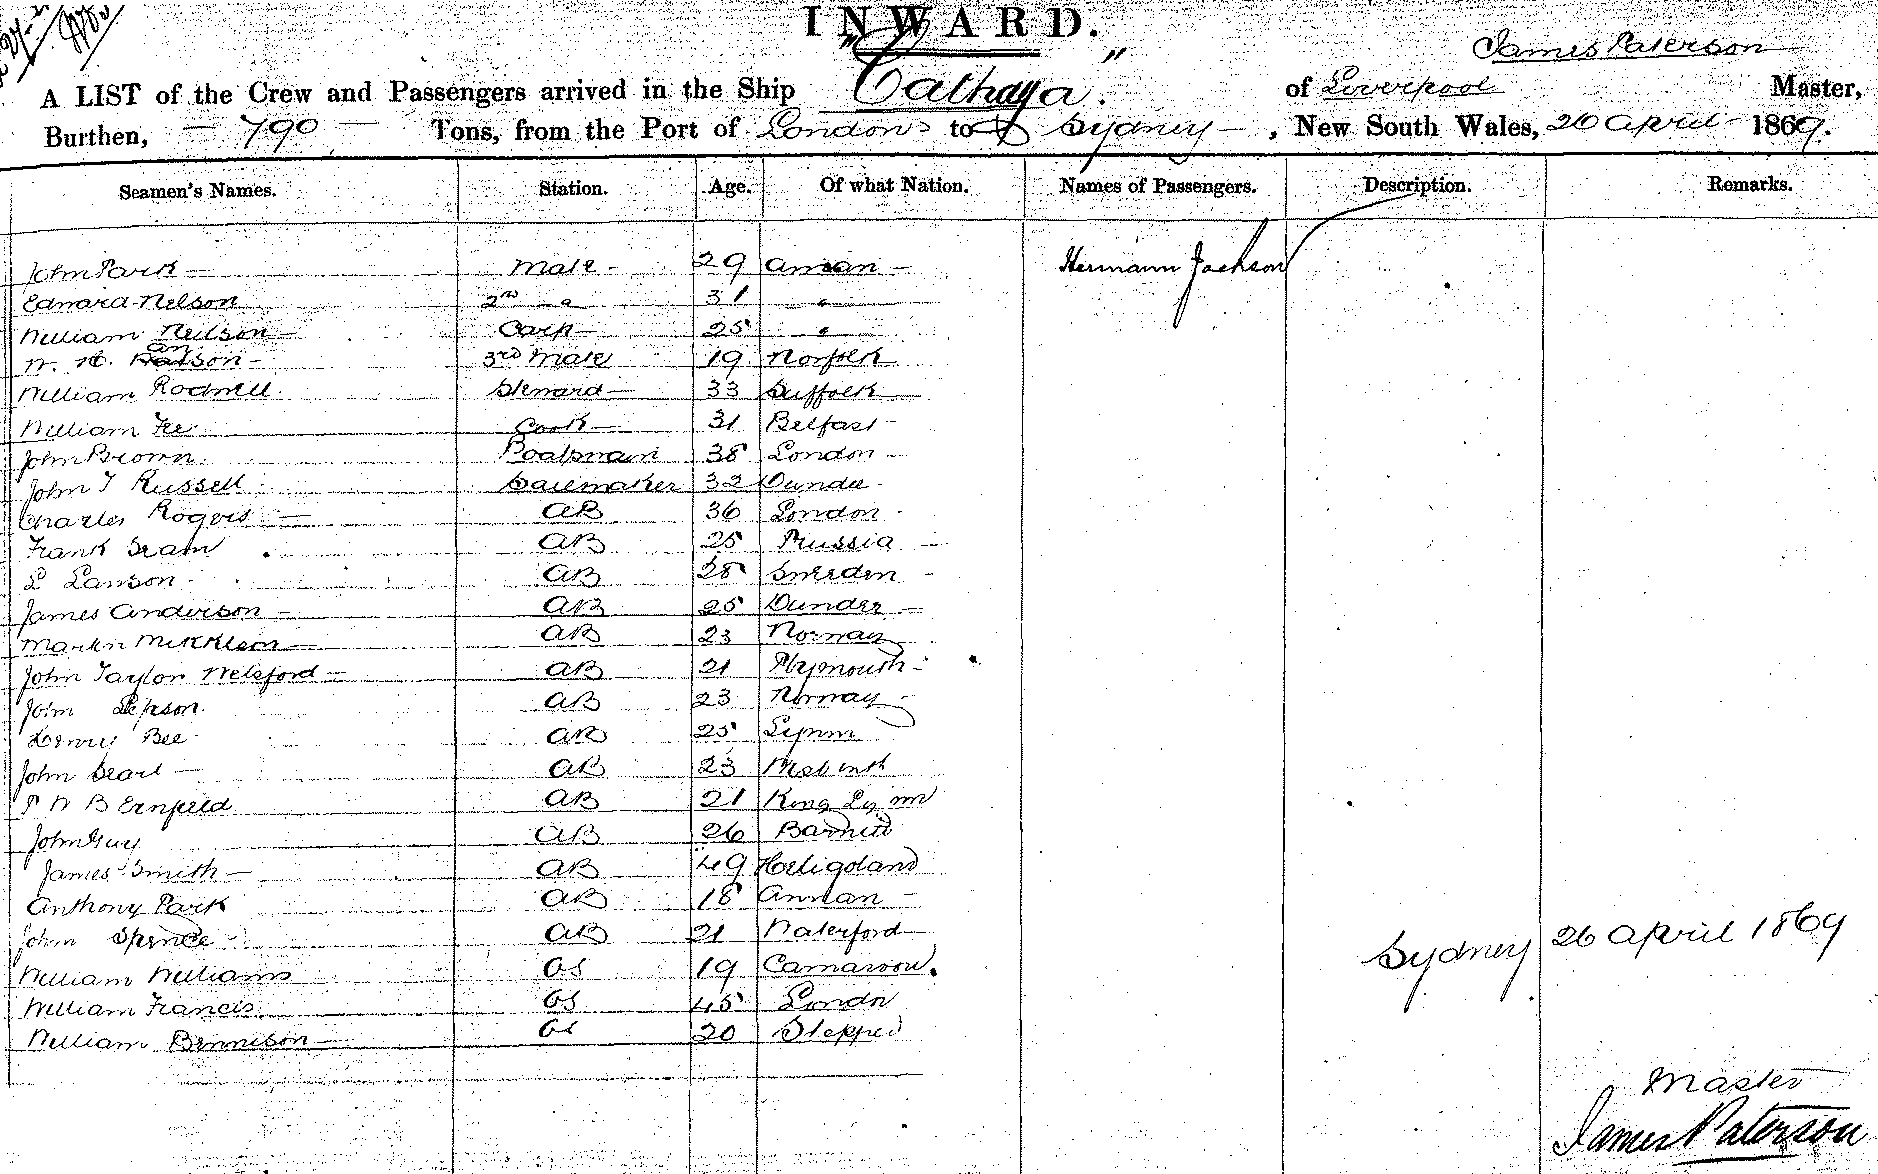 INWARD.
James Paterson
A LIST of the Crew and Passengers arrived in the Ship "Cathaya" of Liverpool Master,
Burthen, 790 Tons, from the Port of London to Sydney, New South Wales, 26 April 1869.
Seamen's Names. Station. Age. Of what Nation. Names of Passengers. Description. Remarks.
John Park Mate 29 Annan Hermann Jackson
Edward Nelson 2nd " 31 "
William Neilson Carp 25 "
3rd Mate 19 Norfolk
William Rodwell Steward 33 Suffolk
William Fee Cook 31 Belfast
John Brown Boatswain 38 London
John T Russell Sailmaker 32 Dundee
Charles Rogers AB 36 London
Frank AB 25 Prussia
L Lawson AB 28 Sweden
James Anderson AB 25 Dundee
Martin Mikklson AB 23 Norway
John Taylor Welsford AB 21 Plymouth
John Jepson AB 23 Norway
Henry Bee AB 25 Lynn
John Searl AB 23 Wisbeach
B Ernfield AB 21 King Lynn
John Guy AB 26 Barnett
James Smith AB 49 Heligoland
Anthony Park AB 18 Annan
John Spence AB 21 Waterford
William Williams OS 19 Carnarvon
William Francis OS 45 London
William Bennison OS 20 Stepney
Sydney 26 April 1869
Master
James Paterson